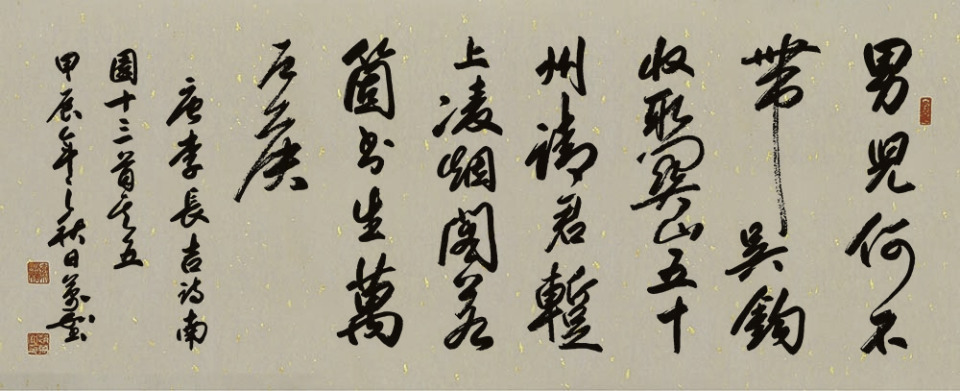 男兒何不
帶吳鈎
收取關山五十
州請君暫
上凌烟閣若
箇書生萬
戶侯
唐李長吉詩南
園十三首其五
甲辰年之秋日